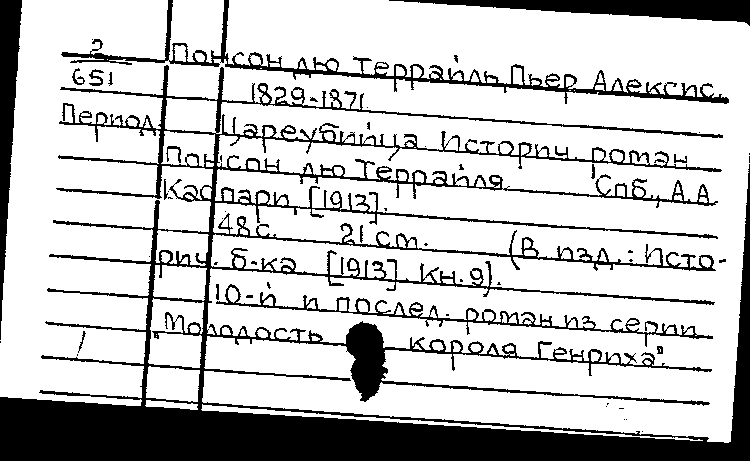 2
651
Понсон дю Террайль, Пьер Алексис.
1829-1871
Период. Цареубийца Историч. роман
Понсон дю Террайля Спб., А.А.
Каспари, [1913].
48 с. 21 ст. (В изд.: Исто-
рич. б-ка [1913] кн. 9).
10-й и послед. роман из серии
"Молодость короля Генриха".